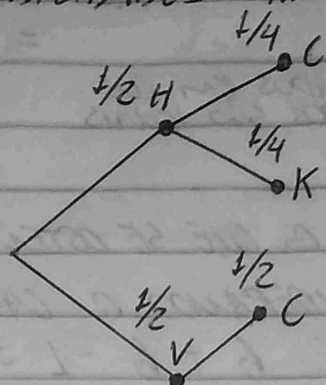 1/4 C
1/2 H
1/4
K
1/2
C
1/2
V